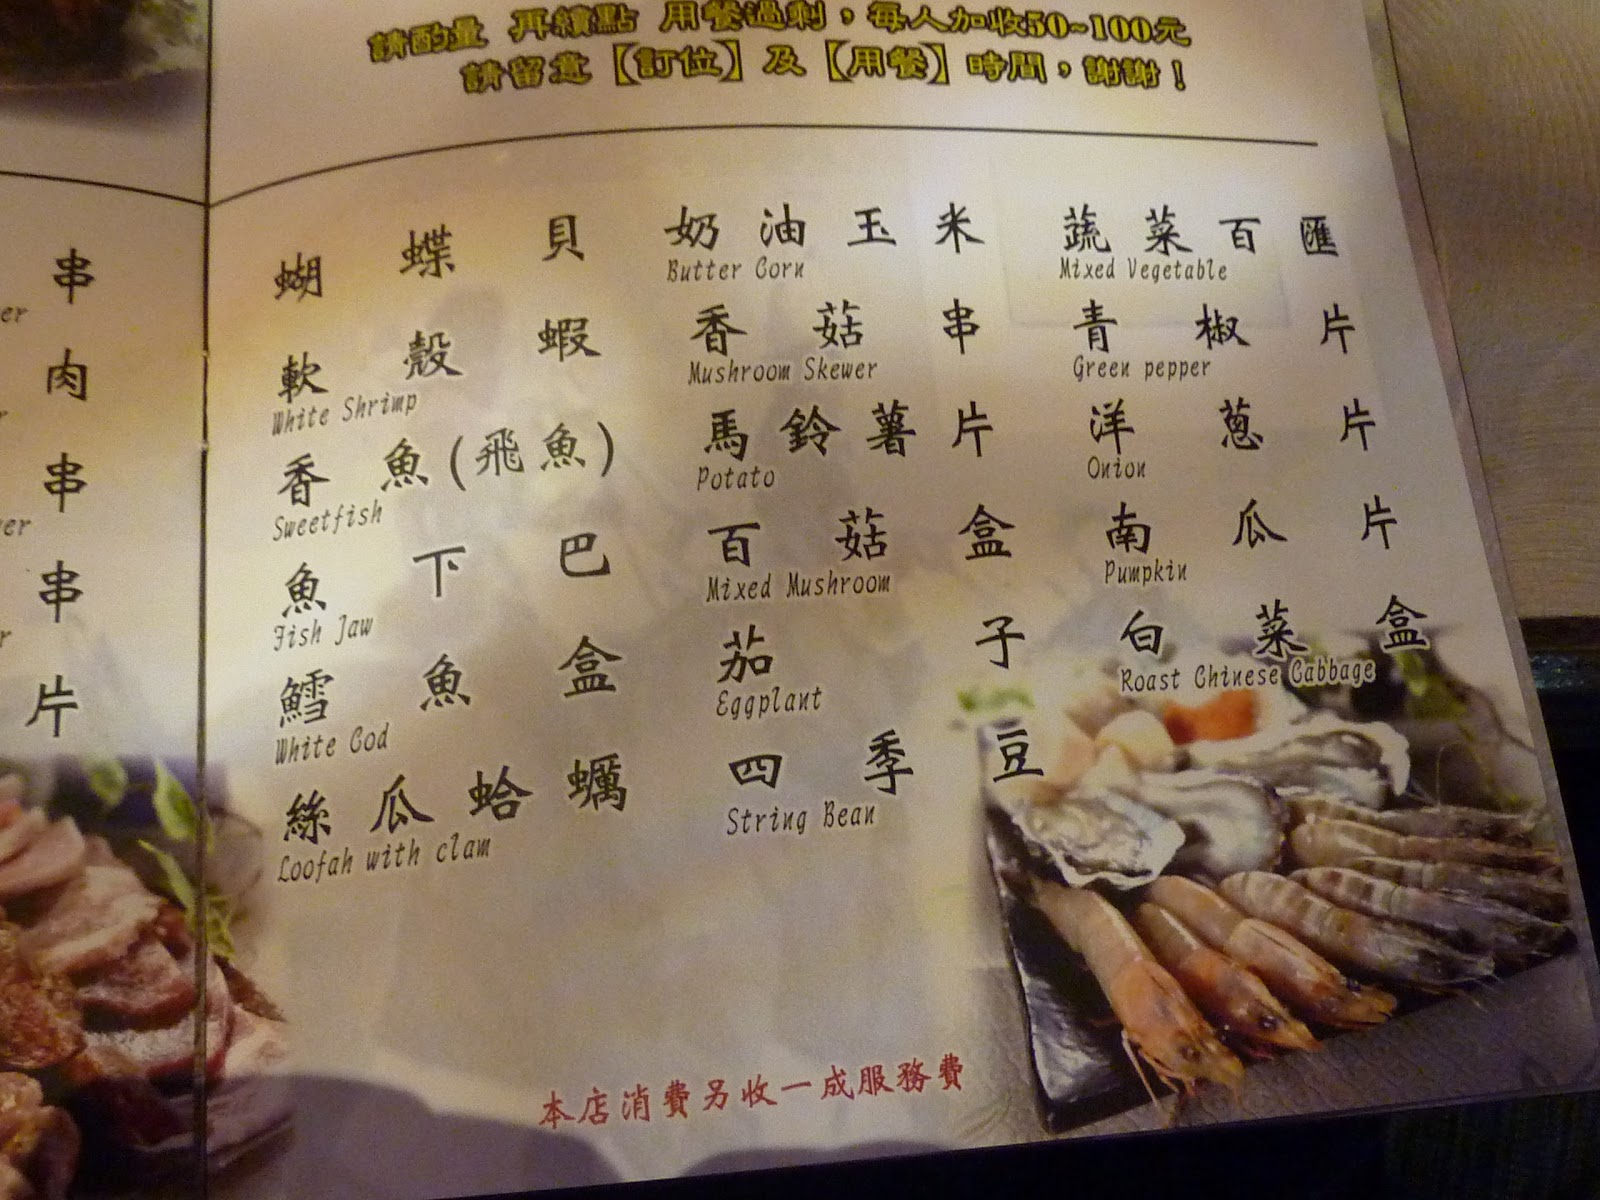 請酌量 再續點 用餐過剩，每人加收50~100元
請留意【訂位】及【用餐】時間，謝謝！
串
er
肉
串
er
串
片
蝴蝶貝
軟殼蝦
White Shrimp
香魚(飛魚)
Sweetfish
魚下巴
Fish Jaw
鱈魚盒
White Cod
絲瓜蛤蠣
Loofah with clam
奶油玉米
Butter Corn
香菇串
Mushroom Skewer
馬鈴薯片
Potato
百菇盒
Mixed Mushroom
茄子
Eggplant
四季豆
String Bean
蔬菜百匯
Mixed Vegetable
青椒片
Green pepper
洋蔥片
Onion
南瓜片
Pumpkin
白菜盒
Roast Chinese Cabbage
本店消費另收一成服務費